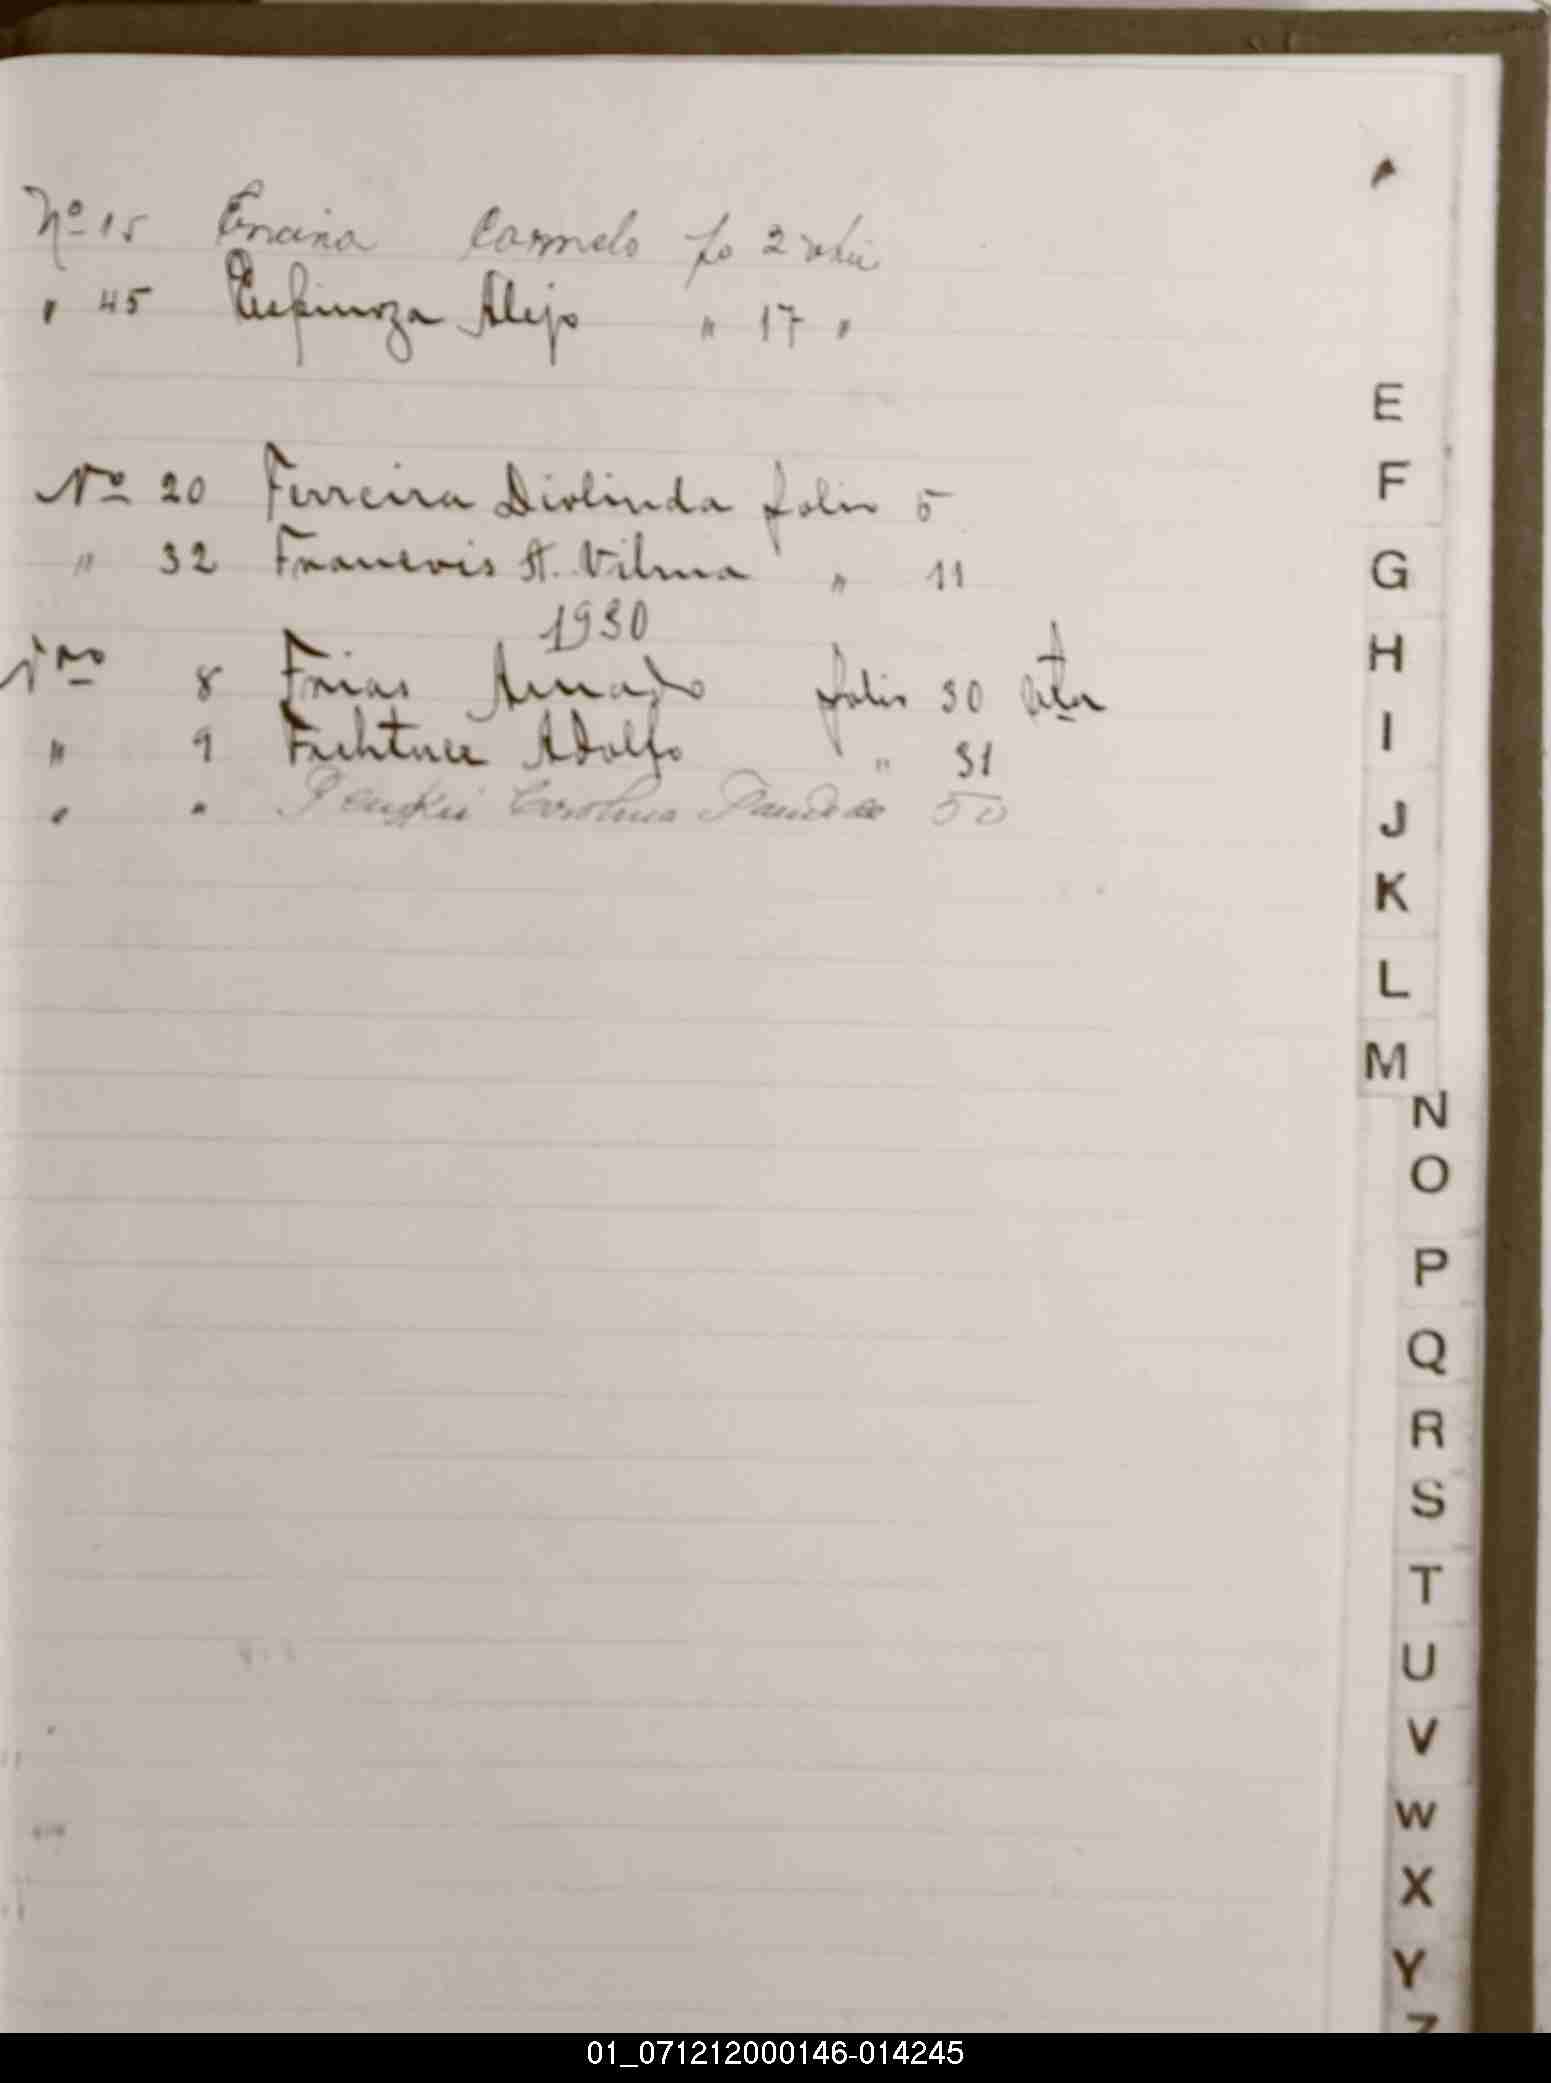 Nº 15 Encina Carmelo fo 2 vta
" 45 Espinoza Alejo " 17 "
Nº 20 Ferreira Diolinda folio 5
" 32 St. Vilma " 11
1930
Nro 8 Frias Amado folio 30 vta
" 9 Adolfo " 31
" " Carolina 50
E
F
G
H
I
J
K
L
M
N
O
P
Q
R
S
T
U
V
W
X
Y
Z
01_071212000146-014245